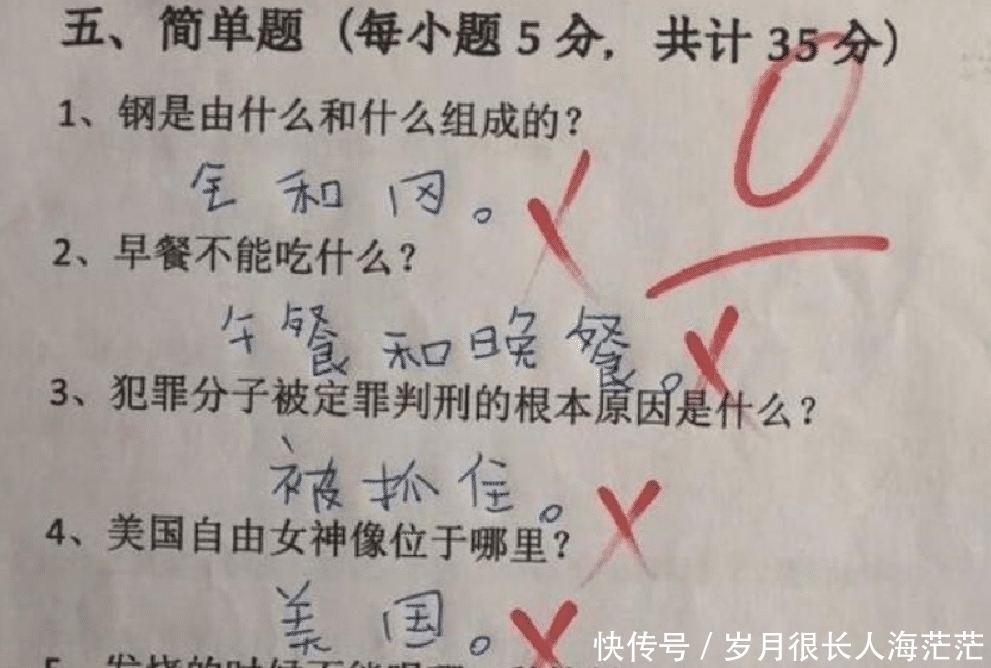 五、简单题（每小题 5 分，共计 35 分）
0
1、钢是由什么和什么组成的？
金和冈。
2、早餐不能吃什么？
午餐和晚餐。
3、犯罪分子被定罪判刑的根本原因是什么？
被抓住。
4、美国自由女神像位于哪里？
美国。
快传号 / 岁月很长人海茫茫